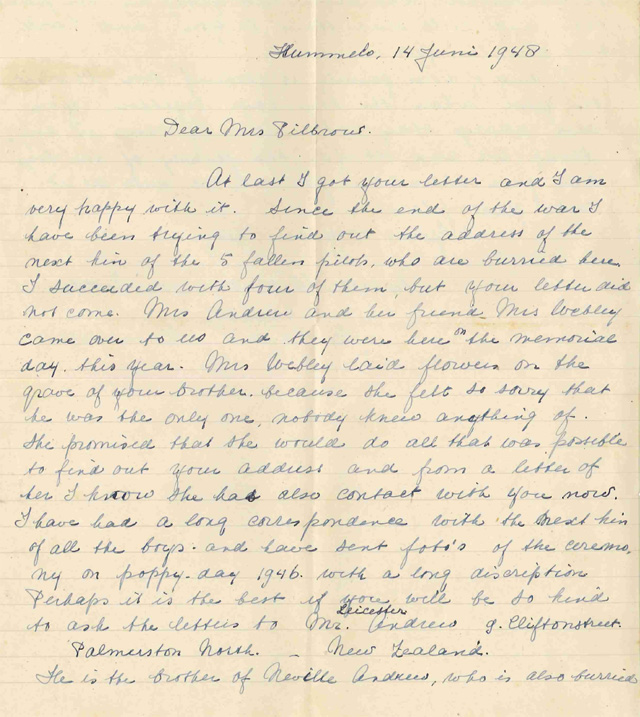 Hummelo, 14 Juni 1948
Dear Mrs Pilbrow.
At last I got your letter and I am
very happy with it. Since the end of the war I
have been trying to find out the address of the
next kin of the 5 fallen pilots, who are burried here
I succeeded with four of them, but your letter did
not come. Mrs Andrew and her friend Mrs Webley
came over to us and they were here on the memorial
day this year. Mrs Webley laid flowers on the
grave of your brother. because she felt so sorry that
he was the only one, nobody knew anything of.
She promised that she would do all that was possible
to find out your address and from a letter of
her I know she has also contact with you now.
I have had a long correspondence with the next kin
of all the boys. and have sent foto's of the ceremo,
ny on poppy-day 1946. with a long discription
Perhaps it is the best if you will be so kind
to ask the letters to Mr. Leicester Andrew g. Cliftonstreet.
Palmerston North. - New Zealand.
He is the brother of Neville Andrew, who is also burried